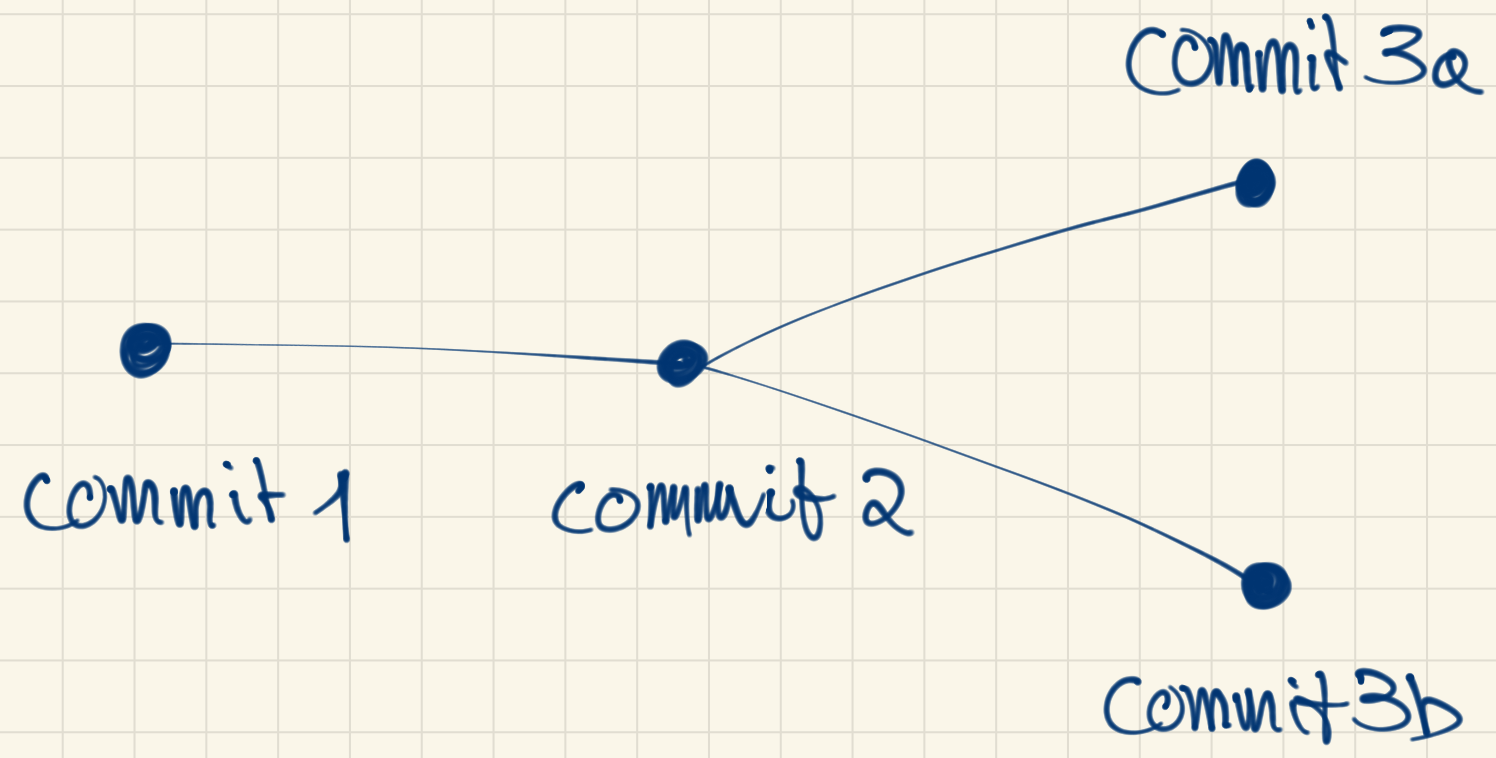 Commit 3a
Commit 1
Commit 2
Commit 3b